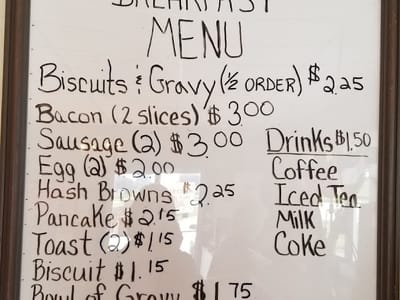 BREAKFAST
MENU
Biscuits & Gravy (½ ORDER) $2.25
Bacon (2 slices) $3.00
Sausage (2) $3.00
Egg (2) $2.00
Hash Browns $2.25
Pancake $2.15
Toast (2) $1.15
Biscuit $1.15
Bowl of Gravy $1.75
Drinks $1.50
Coffee
Iced Tea
Milk
Coke